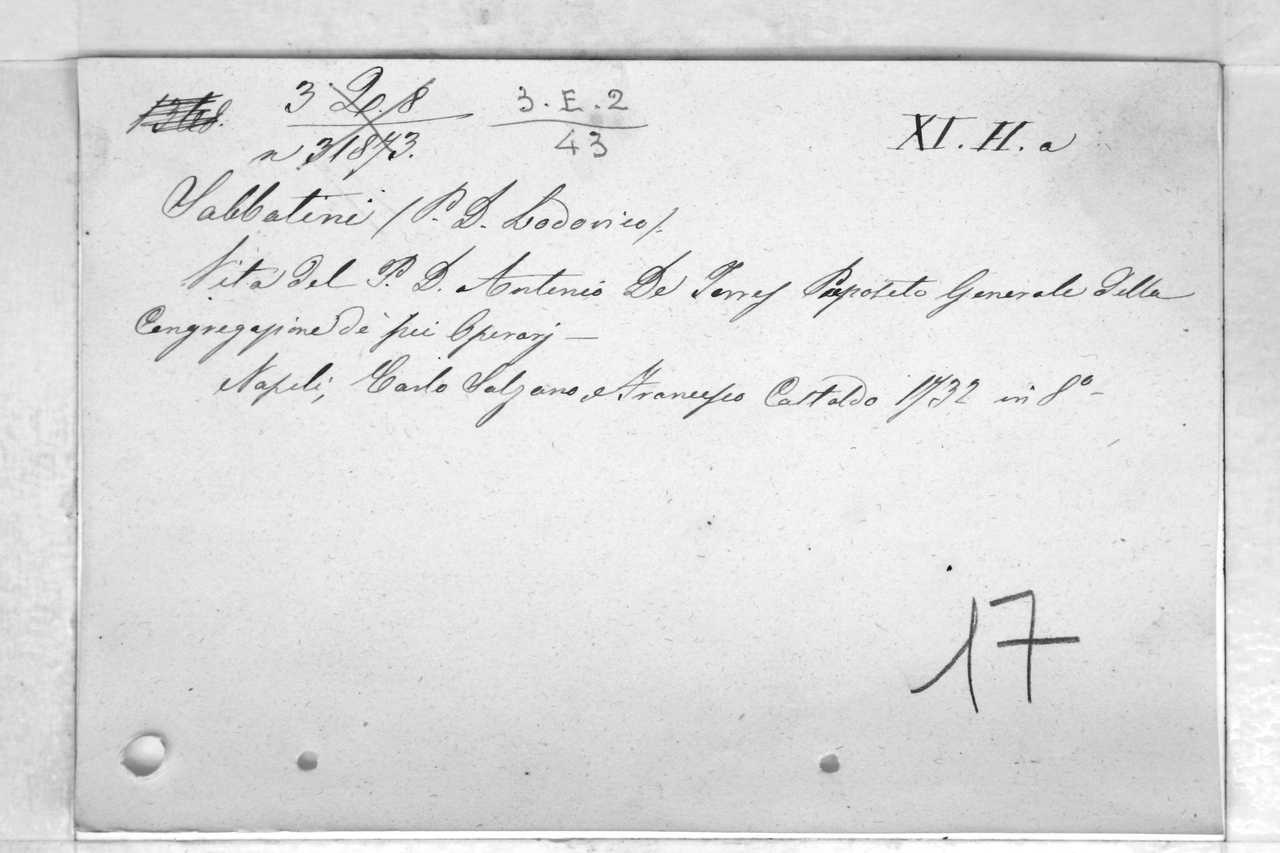 1368. 3 Q. 8 3.E.2 XI.H.a
n 31873. 43
Sabbatini (P. D. Lodovico).
Vita del P. D. Antonio De Torres Preposito Generale della
Congregazione de' pii Operarj —
Napoli, Carlo Salzano, e Francesco Castaldo 1732 in 8º —
17